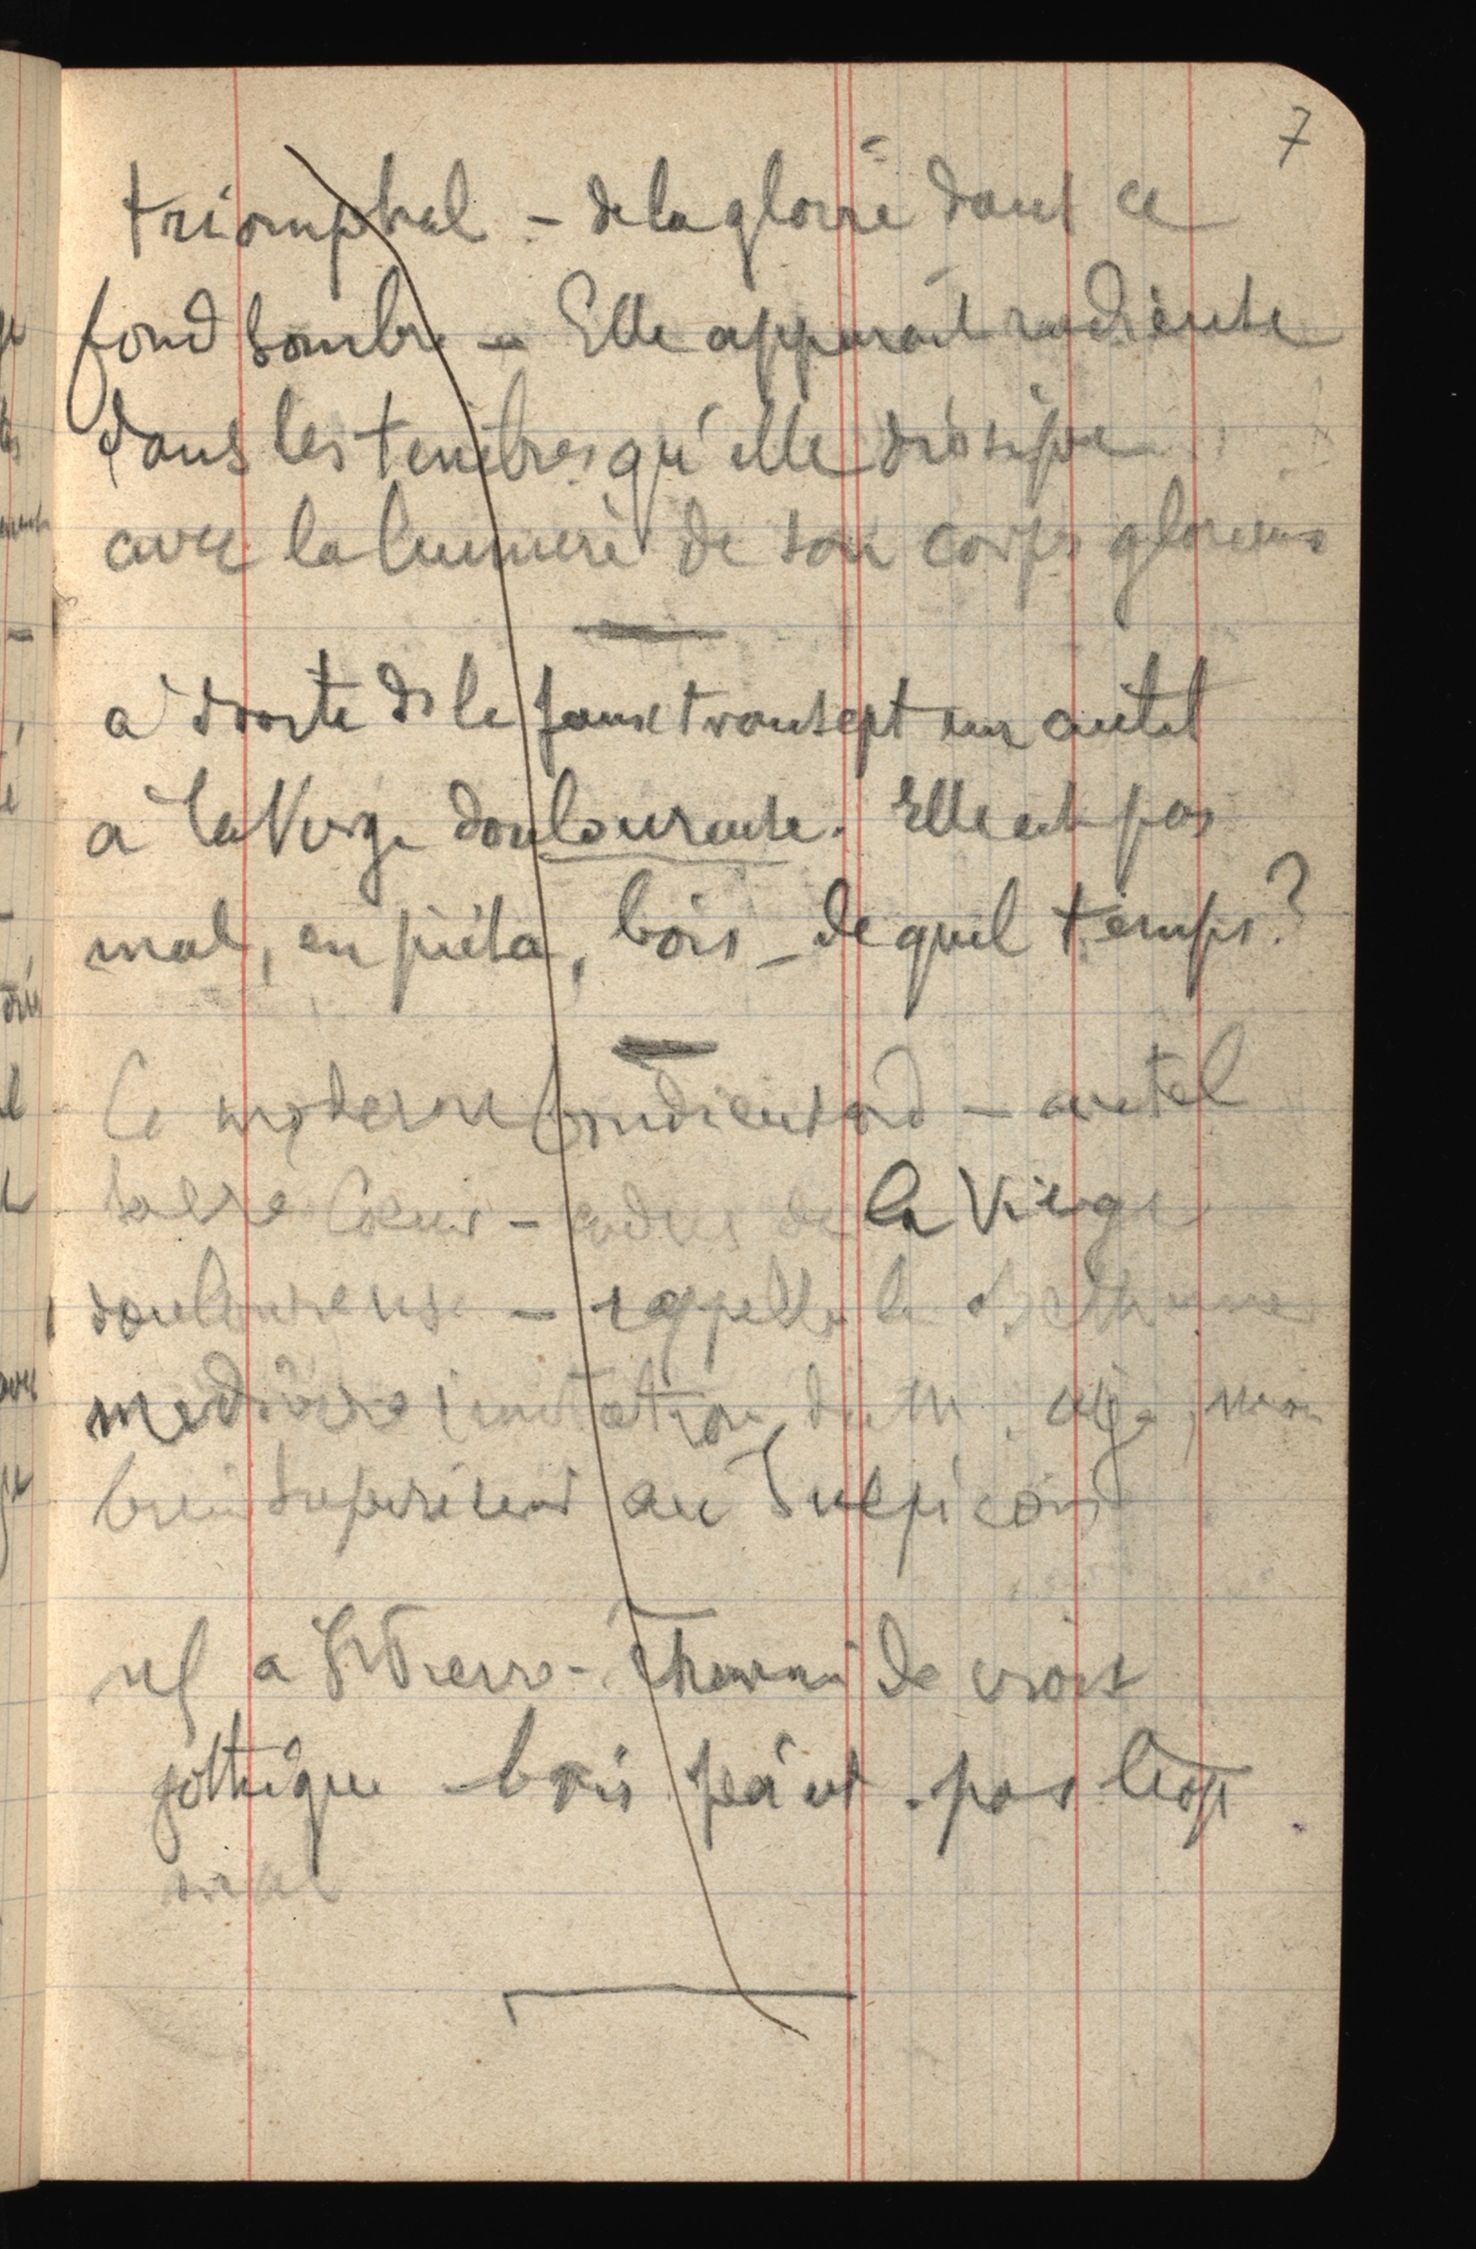 7
triomphal – de la gloire dans ce
fond sombre – Elle apparait radieuse
dans les tenèbres qu'elle dissipe
avec la lumière de son corps glorieux
à droite ds le faux transept un autel
à la Vierge douloureuse. Elle est pas
mal, en piéta, bois – de quel temps?
Le moderne bondieusard – autel
Sacré Cœur – de la Vierge
douloureuse – rappelle le
mediocre imitation du M. age, mais
bien superieur au Sulpicien
nef a St Pierre – Chemin de croix
gothique – bois peint. pas trop
mal